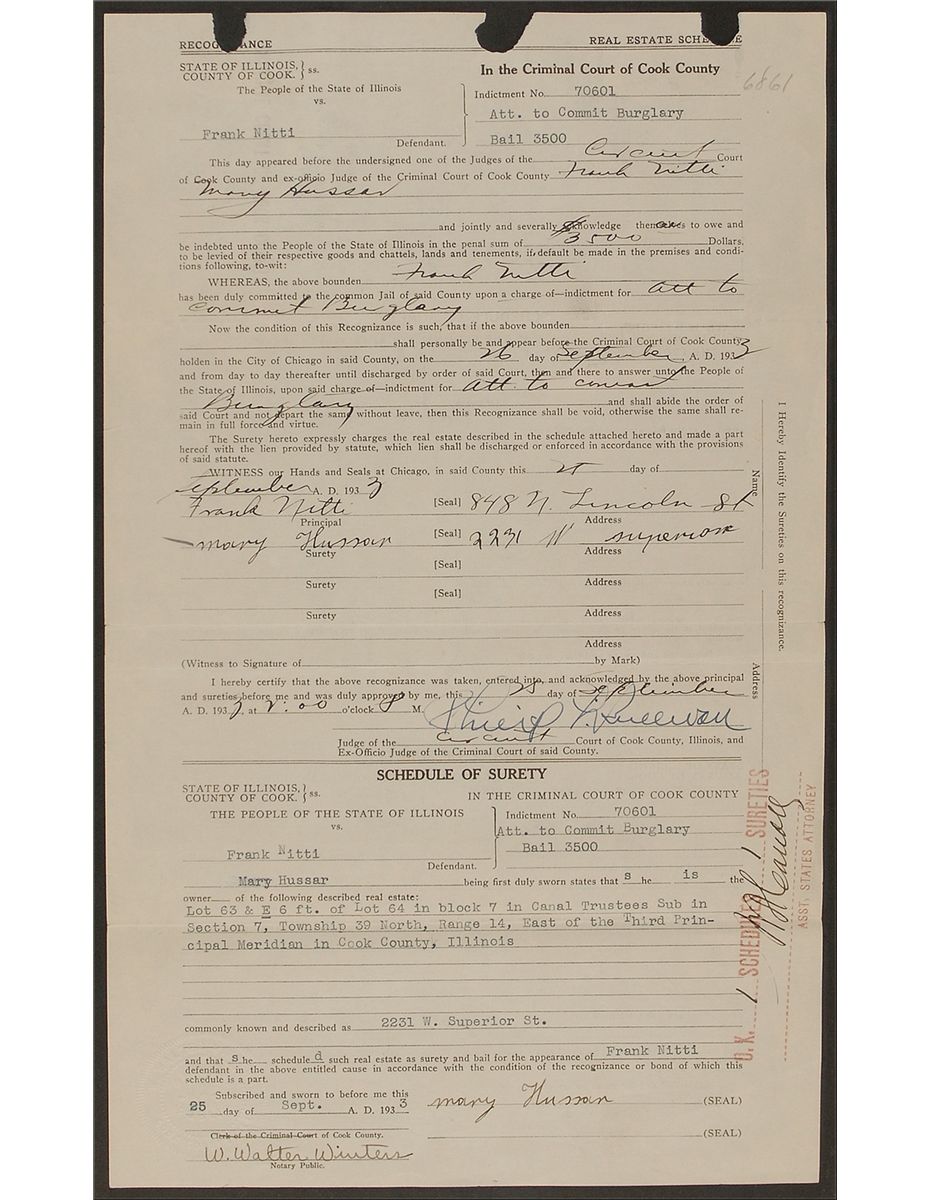 RECOGNANCE
REAL ESTATE SCHEDULE
STATE OF ILLINOIS,
COUNTY OF COOK. } ss.
The People of the State of Illinois
vs.
Frank Nitti
Defendant.
In the Criminal Court of Cook County
6861
Indictment No. 70601
Att. to Commit Burglary
Bail 3500
This day appeared before the undersigned one of the Judges of the Circuit Court
of Cook County and ex-officio Judge of the Criminal Court of Cook County Frank Nitti
Mary Hussar
and jointly and severally acknowledge themselves to owe and
be indebted unto the People of the State of Illinois in the penal sum of 3500 Dollars,
to be levied of their respective goods and chattels, lands and tenements, if default be made in the premises and condi-
tions following, to-wit:
WHEREAS, the above bounden Frank Nitti
has been duly committed to the common Jail of said County upon a charge of—indictment for Att to
Commit Burglary
Now the condition of this Recognizance is such, that if the above bounden
shall personally be and appear before the Criminal Court of Cook County
holden in the City of Chicago in said County, on the 26 day of September A. D. 1933
and from day to day thereafter until discharged by order of said Court, then and there to answer unto the People of
the State of Illinois, upon said charge of—indictment for Att. to
Burglary and shall abide the order of
said Court and not depart the same without leave, then this Recognizance shall be void, otherwise the same shall re-
main in full force and virtue.
The Surety hereto expressly charges the real estate described in the schedule attached hereto and made a part
hereof with the lien provided by statute, which lien shall be discharged or enforced in accordance with the provisions
of said statute.
WITNESS our Hands and Seals at Chicago, in said County this day of
September A. D. 1933
Frank Nitti [Seal] 848 N. Lincoln St
Principal Address
Mary Hussar [Seal] 2231 W Superior
Surety Address
[Seal]
Surety Address
[Seal]
Surety Address
Address
(Witness to Signature of by Mark)
I hereby certify that the above recognizance was taken, entered into, and acknowledged by the above principal
and sureties before me and was duly approved by me, this 25 day of September
A. D. 193 at 2:00 o'clock P M.
Judge of the Circuit Court of Cook County, Illinois, and
Ex-Officio Judge of the Criminal Court of said County.
I Hereby Identify the Sureties on this recognizance.
Name
Address
SCHEDULE OF SURETY
STATE OF ILLINOIS,
COUNTY OF COOK. } ss.
IN THE CRIMINAL COURT OF COOK COUNTY
THE PEOPLE OF THE STATE OF ILLINOIS
vs.
Frank Nitti
Defendant.
Indictment No. 70601
Att. to Commit Burglary
Bail 3500
Mary Hussar being first duly sworn states that s he is the
owner of the following described real estate:
Lot 63 & E 6 ft. of Lot 64 in block 7 in Canal Trustees Sub in
Section 7, Township 39 North, Range 14, East of the Third Prin-
cipal Meridian in Cook County, Illinois
commonly known and described as 2231 W. Superior St.
and that s he schedule d such real estate as surety and bail for the appearance of Frank Nitti
defendant in the above entitled cause in accordance with the condition of the recognizance or bond of which this
schedule is a part.
Subscribed and sworn to before me this
25 day of Sept. A. D. 1933
Mary Hussar (SEAL)
Clerk of the Criminal Court of Cook County.
(SEAL)
W. Walter Winters
Notary Public.
O. K. 1 SCHEDULES 1 SURETIES
ASST. STATES ATTORNEY